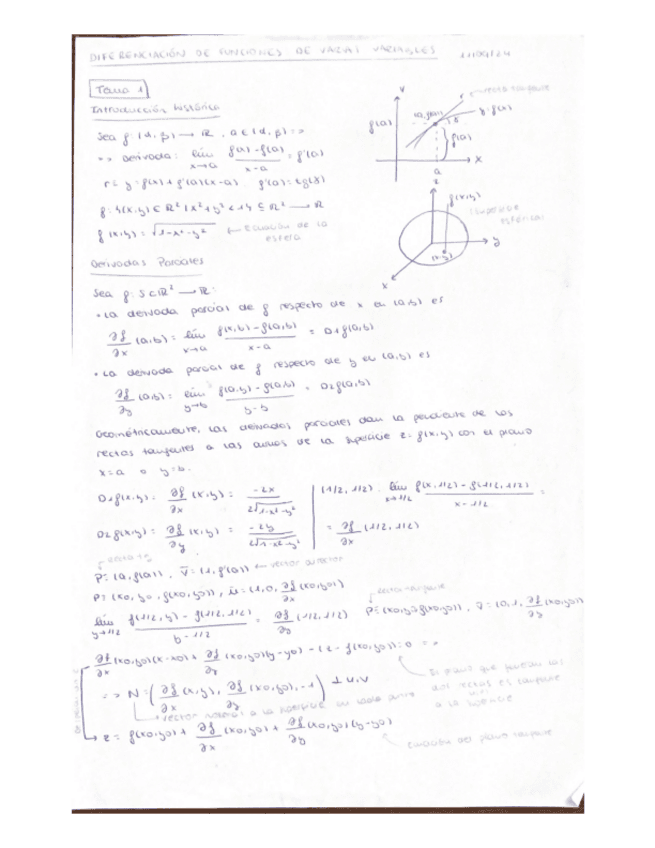 DIFERENCIACIÓN DE FUNCIONES DE VARIAS VARIABLES
Tema 1
Introducción histórica
Sea f: (α, β) → ℝ, a ∈ (α, β) =>
=> Derivada: lím x→a (f(x) - f(a))/(x-a) = f'(a)
r ≡ y = f(a) + f'(a)(x-a)
f(a)
(a, f(a))
recta tangente
y = f(x)
f(a)
a
x
f: {(x,y) ∈ ℝ² | x²+y² < 1} ⊆ ℝ² → ℝ
f(x,y) = √(1-x²-y²) ← Ecuación de la esfera
z
f(x,y)
superficie esférica
(x,y)
y
x
Derivadas Parciales
Sea f: S ⊂ ℝ² → ℝ:
• La derivada parcial de f respecto de x en (a,b) es
∂f/∂x (a,b) = lím x→a (f(x,b) - f(a,b))/(x-a) = D1f(a,b)
• La derivada parcial de f respecto de y en (a,b) es
∂f/∂y (a,b) = lím y→b (f(a,y) - f(a,b))/(y-b) = D2f(a,b)
Geométricamente, las derivadas parciales dan la pendiente de las
rectas tangentes a las curvas de la superficie z = f(x,y) con el plano
x=a o y=b.
D1f(x,y) = ∂f/∂x (x,y) = -2x/(2√(1-x²-y²))
(1/2, 1/2). lím x→1/2 (f(x,1/2) - f(1/2,1/2))/(x-1/2) =
D2f(x,y) = ∂f/∂y (x,y) = -2y/(2√(1-x²-y²))
= ∂f/∂x (1/2, 1/2)
P = (a, f(a)), v̄ = (1, f'(a)) ← vector director
P = (x0, y0, f(x0,y0)), ū = (1, 0, ∂f/∂x (x0,y0))
recta tangente
lím y→1/2 (f(1/2,y) - f(1/2,1/2))/(b-1/2) = ∂f/∂y (1/2, 1/2)
P = (x0,y0,f(x0,y0)), v̄ = (0, 1, ∂f/∂y (x0,y0))
∂f/∂x (x0,y0)(x-x0) + ∂f/∂y (x0,y0)(y-y0) - (z - f(x0,y0)) = 0 =>
=> N = (∂f/∂x (x,y), ∂f/∂y (x0,y0), -1) ⊥ u,v
El plano que generan las
dos rectas es tangente
a la superficie
vector normal a la superficie en cada punto
z = f(x0,y0) + ∂f/∂x (x0,y0) + ∂f/∂y (x0,y0)(y-y0)
ecuación del plano tangente